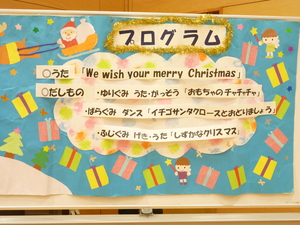 プログラム
○うた 「We wish your merry Christmas」
○だしもの ・ゆりぐみ うた・がっそう 「おもちゃの チャチャチャ」
・ばらぐみ ダンス 「イチゴサンタクロースとおどりましょう」
・ふじぐみ げき・うた 「しずかなクリスマス」